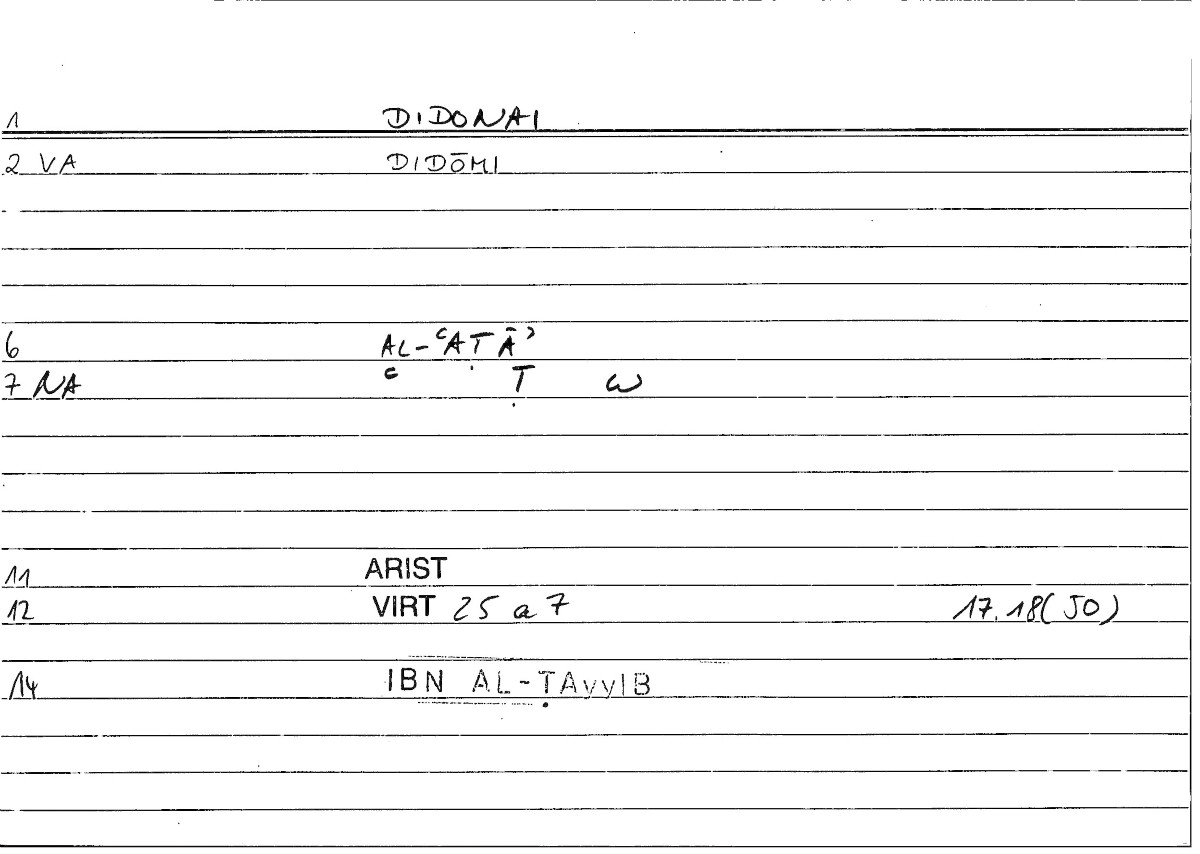 1 DIDONAI
2 VA DIDŌMI
6 AL-ʿAṬĀʾ
7 NA ʿ Ṭ W
11 ARIST
12 VIRT 25 a 7 17.18(50)
14 IBN AL-ṬAyyIB